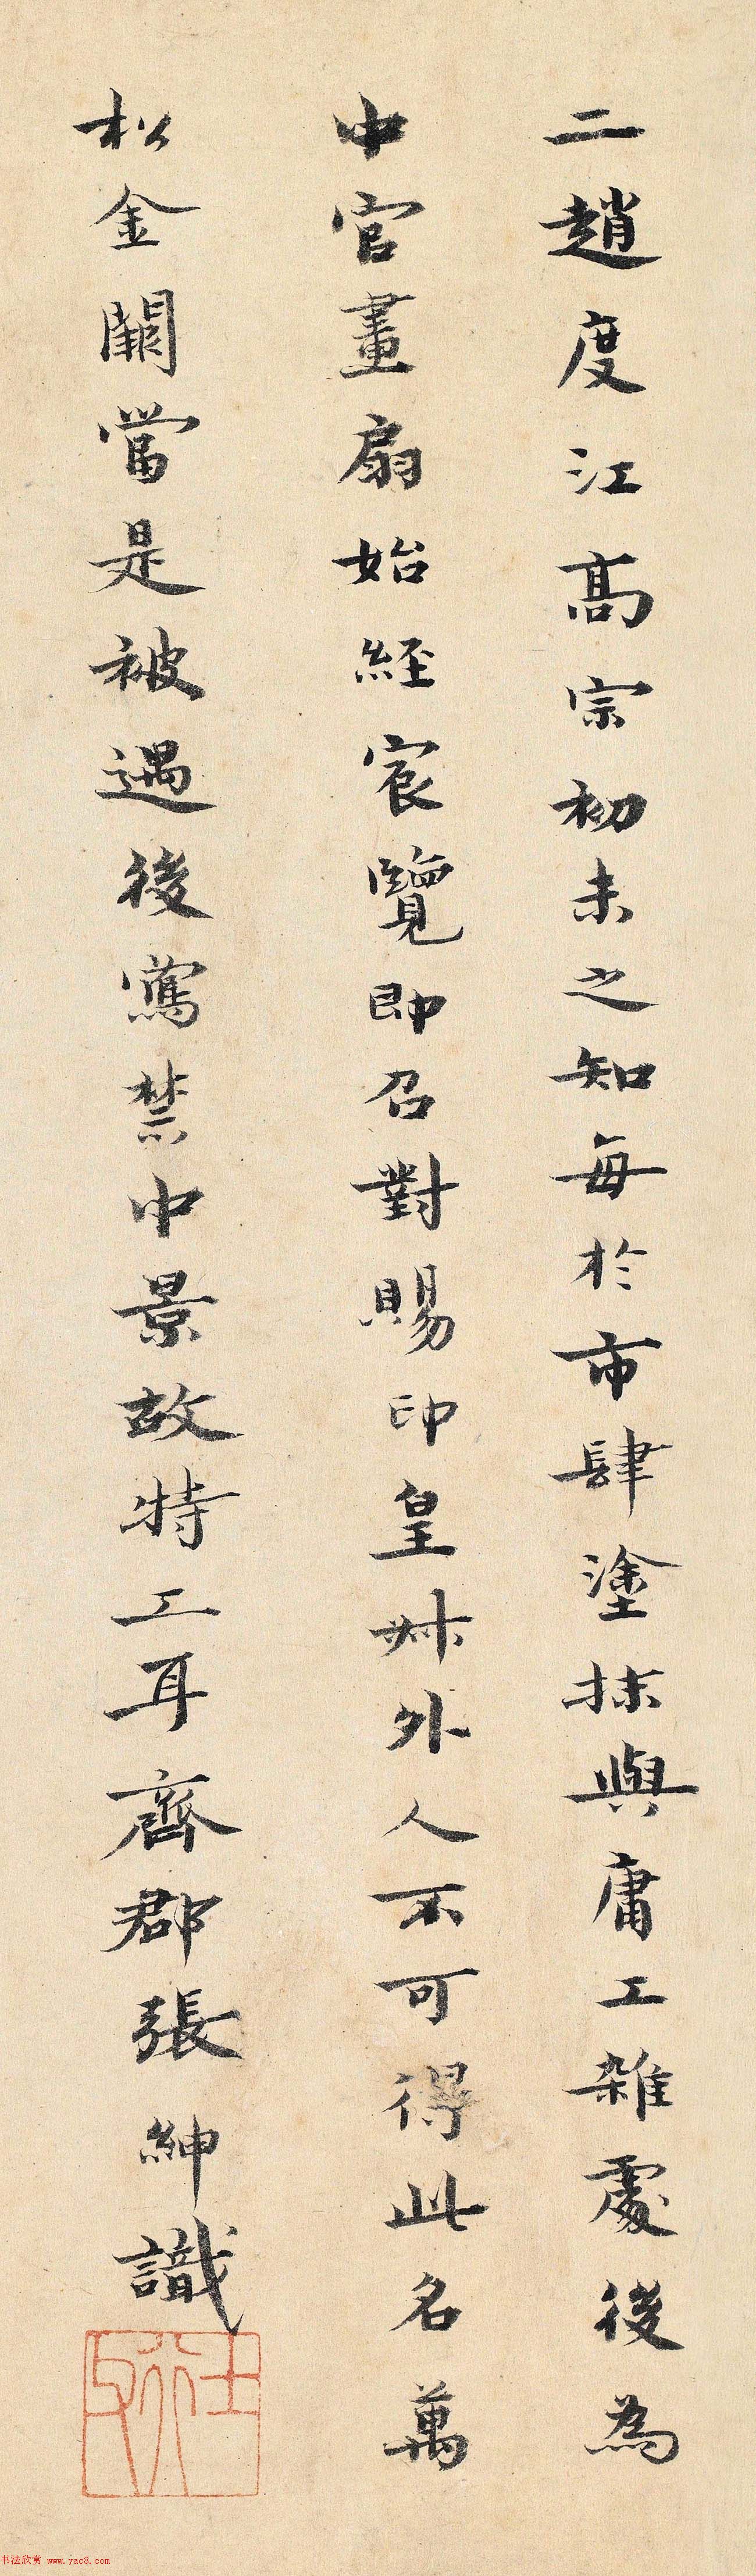 二趙度江高宗初未之知每於市肆塗抹與庸工雜處後為
中官畫扇始經宸覽即召對賜印皇叔外人不可得此名萬
松金闕當是被遇後寫禁中景故特工耳齊郡張紳識
书法欣赏 www.yac8.com